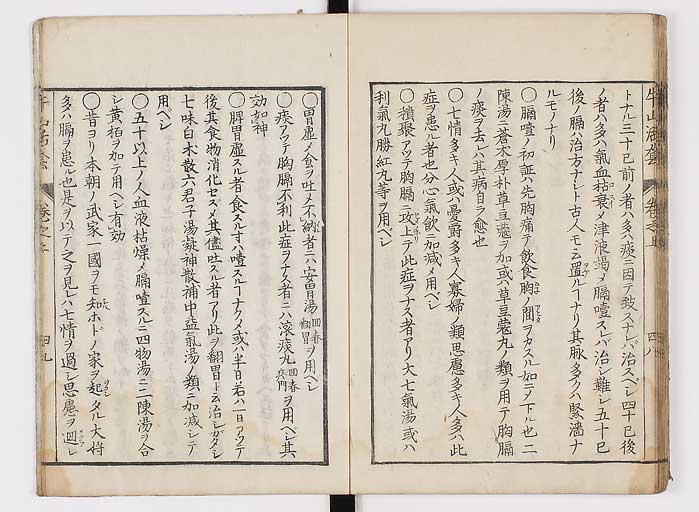 牛山活套 卷之上 四八
トナル三十已前ノ者ハ多ハ痰ニ因テ致スナレバ治スベシ四十已後
ノ者ハ多ハ氣血枯衰メ津液竭メ膈噎スレバ治シ難シ五十已
後ノ膈ハ治方ナレト古人モ云置ルーナリ其脉多クハ緊濇ナ
ルモノナリ
〇膈噎ノ初証ハ先胸痛テ飲食胸ノ間ヲカスル如ニメ下ル也二
陳湯ニ蒼朮厚朴草豆蔲ヲ加或ハ草豆蔲丸ノ類ヲ用テ胸膈
ノ痰ヲ去レハ其病自ラ愈也
〇七情多キ人或ハ憂爵多キ人寡婦ノ類思慮多キ人多ハ此
症ヲ患ル者也分心氣飲ニ加減メ用ベシ
〇積聚アツテ胸膈ニ攻上テ此症ヲナス者アリ大七氣湯或ハ
利氣丸勝紅丸等ヲ用ベシ
〇胃虛メ食ヲ吐メ不納者ニハ安胃湯回春翻胃ヲ用ベシ
〇痰アツテ胸膈不利此症ヲナス者ニハ滚痰丸回春痰門ヲ用ベシ其
効如神
〇脾胃虛スル者食スルオハ噎スルーナクメ或ハ半日若ハ一日アツテ
後其食物消化セズメ其儘吐スル者アリ此ヲ翻胃ト云治シガタシ
七味白朮散六君子湯凝神散補中益氣湯ノ類ニ加減シテ
用ベシ
〇五十以上ノ人血液枯燥メ膈噎スルニ四物湯ニ二陳湯ヲ合
シ黄栢ヲ加テ用ベシ有効
〇昔ヨリ本朝ノ武家一國ヲモ知ホドノ家ヲ起タル大將
多ハ膈ヲ患ル也是ヲ以テ之ヲ見レハ七情ヲ過シ思慮ヲ廻シ
牛山活套 卷之上 四九